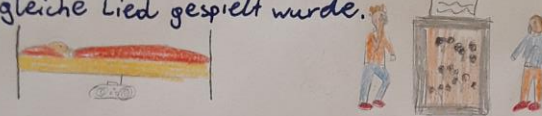 gleiche Lied gespielt wurde.